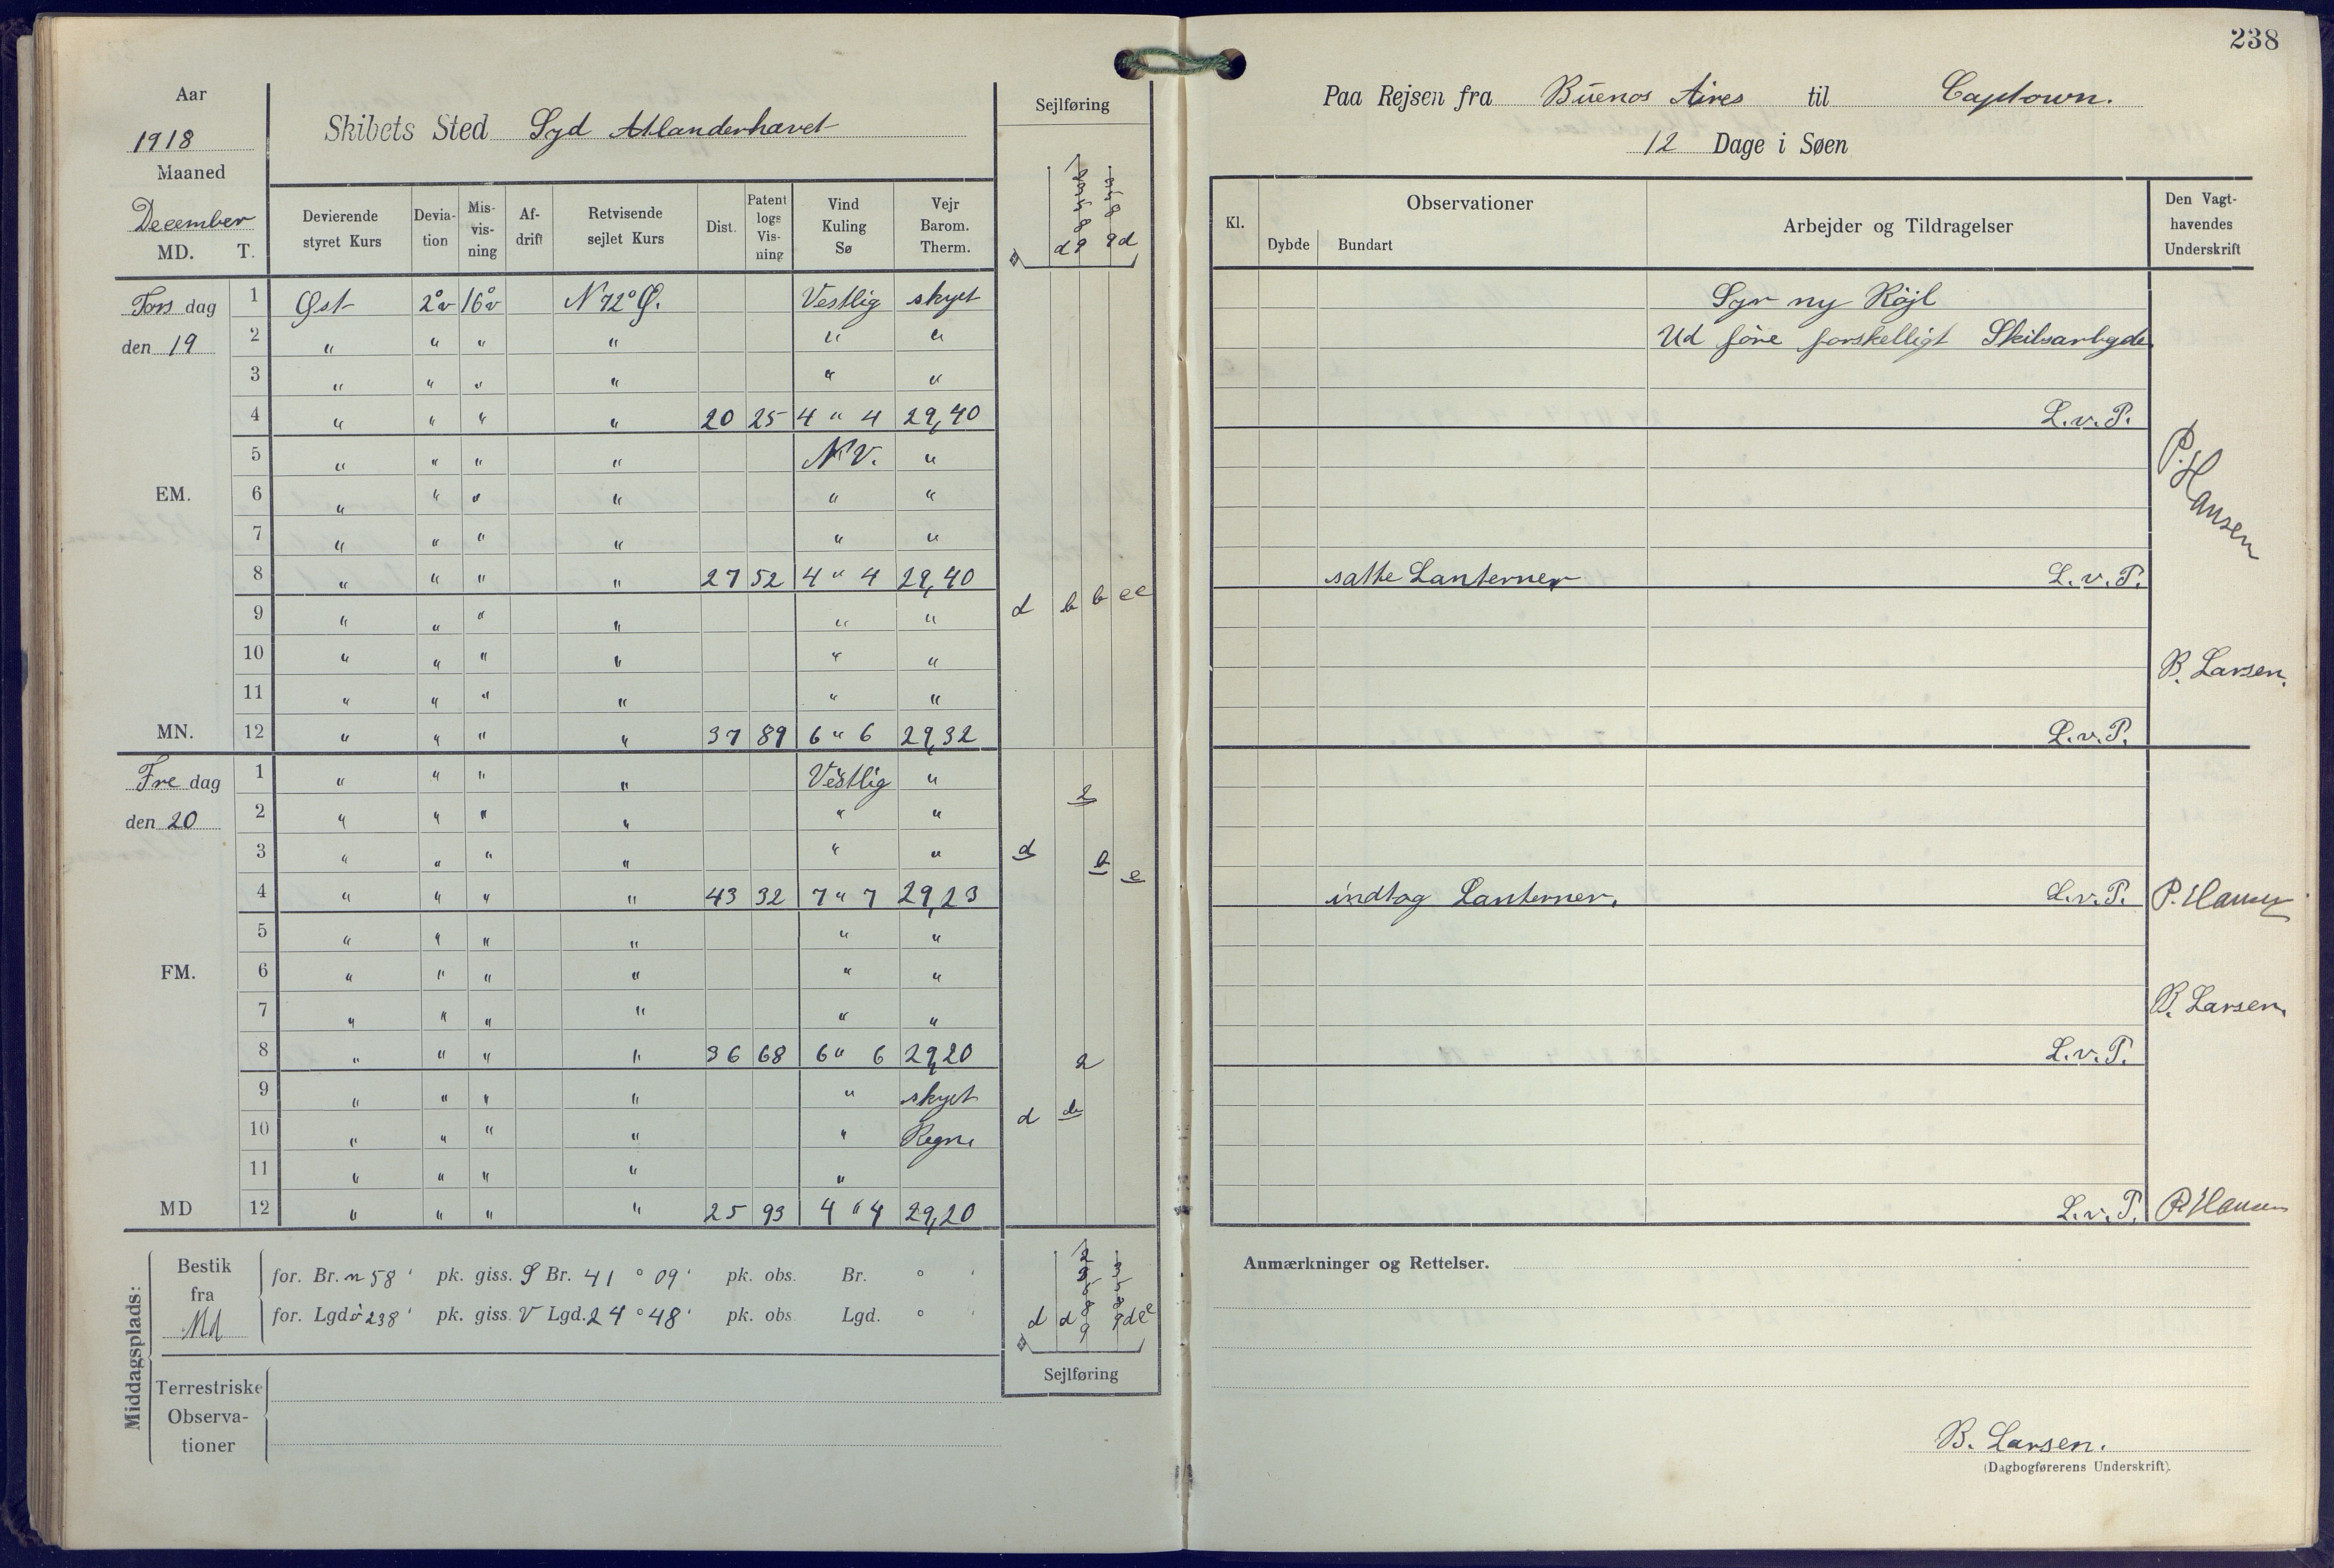 238
Aar
1918
Maaned
December
MD. T.
Skibets Sted Syd Atlanderhavet
Sejlføring
Devierende styret Kurs
Devia-tion
Mis-vis-ning
Af-drift
Retvisende sejlet Kurs
Dist.
Patent logs Vis-ning
Vind Kuling Sø
Vejr Barom. Therm.
Tors dag 1 Øst 2°v 16°v N 72° Ø. Vestlig skyet
den 19 2 " " " " " "
3 " " " " " "
4 " " " " 20 25 4 " 4 29,40
5 " " " " NV. "
EM. 6 " " " " " "
7 " " " " " "
8 " " " " 27 52 4 " 4 29,40
d b b e e
9 " " " " " "
10 " " " " " "
11 " " " " " "
MN. 12 " " " " 37 89 6 " 6 29,32
Fre dag 1 " " " " Vestlig "
2
den 20 2 " " " " " "
3 " " " " " "
d b e
4 " " " " 43 32 7 " 7 29,23
5 " " " " " "
FM. 6 " " " " " "
7 " " " " " "
8 " " " " 36 68 6 " 6 29,20
2
9 " " " " " skyet
d
10 " " " " " Regn.
11 " " " " "
MD 12 " " " " 25 93 4 " 4 29,20
Middagsplads:
Bestik fra Md
for. Br. n 58 ' pk. giss. S Br. 41 ° 09 ' pk. obs. Br. ° '
for. Lgd ø 238 ' pk. giss. V Lgd. 24 ° 48 ' pk. obs. Lgd. ° '
Terrestriske
Observa-
tioner
Sejlføring
Paa Rejsen fra Buenos Aires til Captown.
12 Dage i Søen
Kl.
Observationer
Dybde Bundart
Arbejder og Tildragelser
Den Vagt-
havendes
Underskrift
Syr ny Röjl
Ud före forskelligt Skibsarbyde
L.v.P.
P. Hansen
satte Lanterner L.v.P.
B. Larsen.
L.v.P.
indtog Lanterner. L.v.P. P. Hansen
B. Larsen.
L.v.P.
L.v.P. P. Hansen
Anmærkninger og Rettelser.
B. Larsen.
(Dagbogførerens Underskrift).